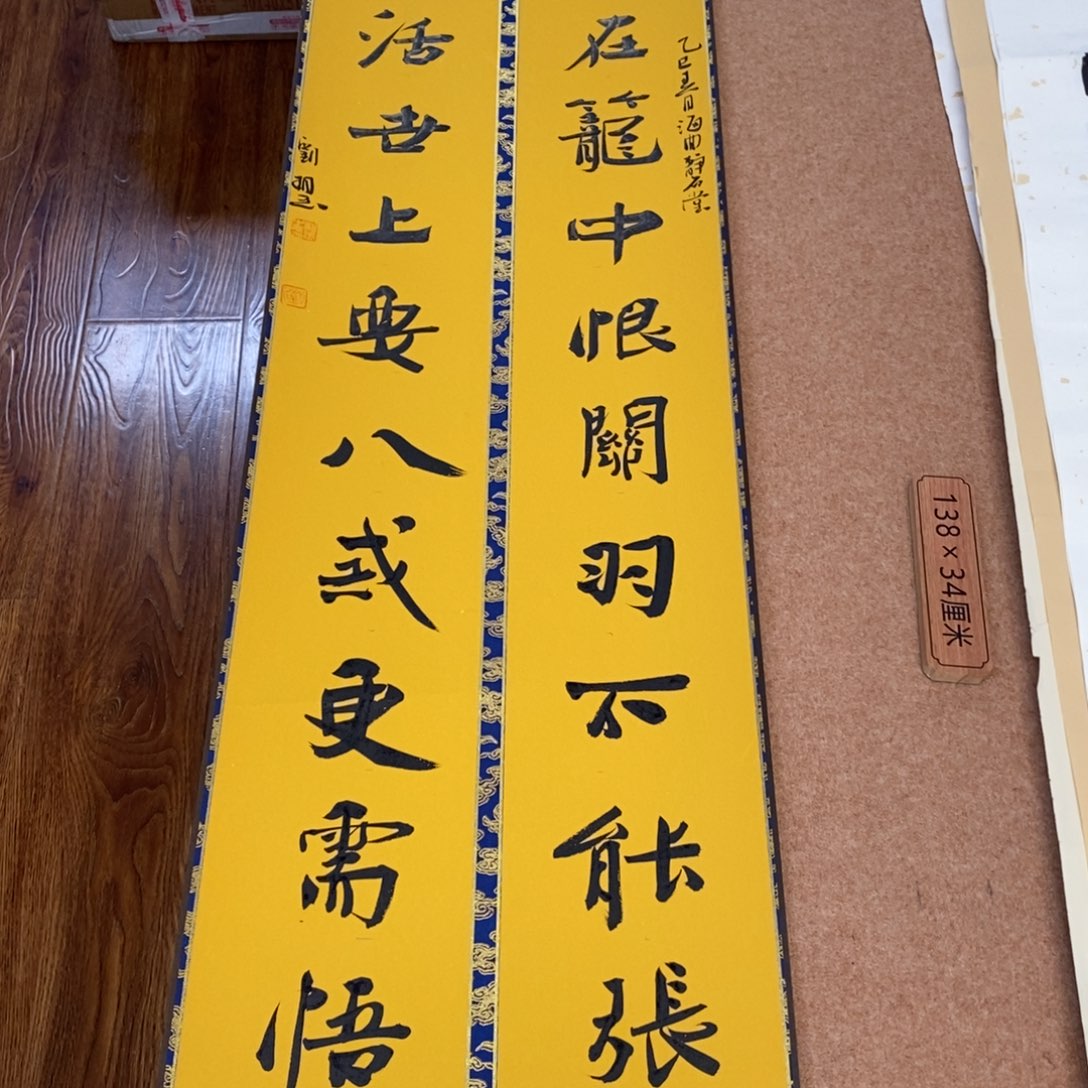 乙巳春日海曲靜石堂
在籠中恨關羽不能張
活世上要八戒更需悟
劉
138×34厘米